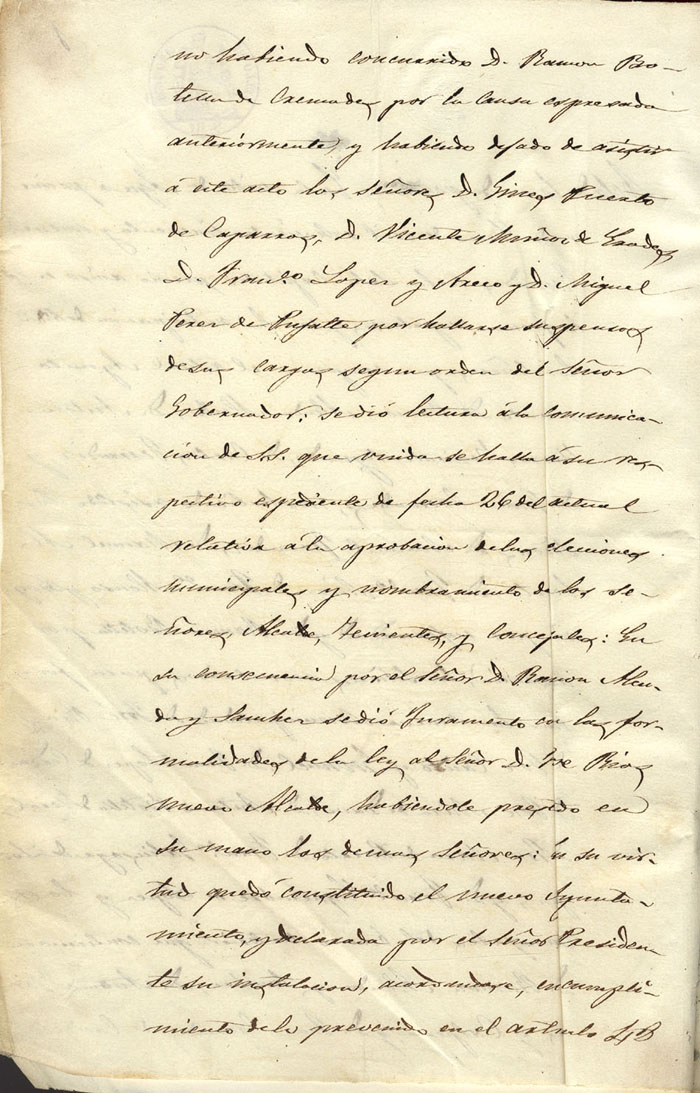 no habiendo concurrido D. Ramon Bro-
tella de Cremades por la causa espresada
anteriormente, y habiendo dejado de asistir
á este acto los Señores D. Gines Puerto
de Caparros, D. Vicente Muñoz de
D. Fran.co Lopez y y D. Miguel
Perez de Pujalte por hallarse suspensos
de sus cargos segun orden del Señor
Gobernador; se dió lectura á la comunica-
cion de S.S. que unida se halla á su res-
pectivo espediente de fecha 26 del actual
relativa á la aprobacion de las elecciones
municipales y nombramiento de los Se-
ñores, Alcalde, Tenientes, y Concejales: En
su consecuencia por el Señor D. Ramon
y Sanchez se dió Juramento con las for-
malidades de la ley al Señor D. José Rios
nuevo Alcalde, habiendole prestado en
su mano los demas Señores: En su vir-
tud quedó constituido el nuevo Ayunta-
miento, y declarada por el Señor Presiden-
te su instalacion, acordandose, en cumpli-
miento de lo prevenido en el artículo 48